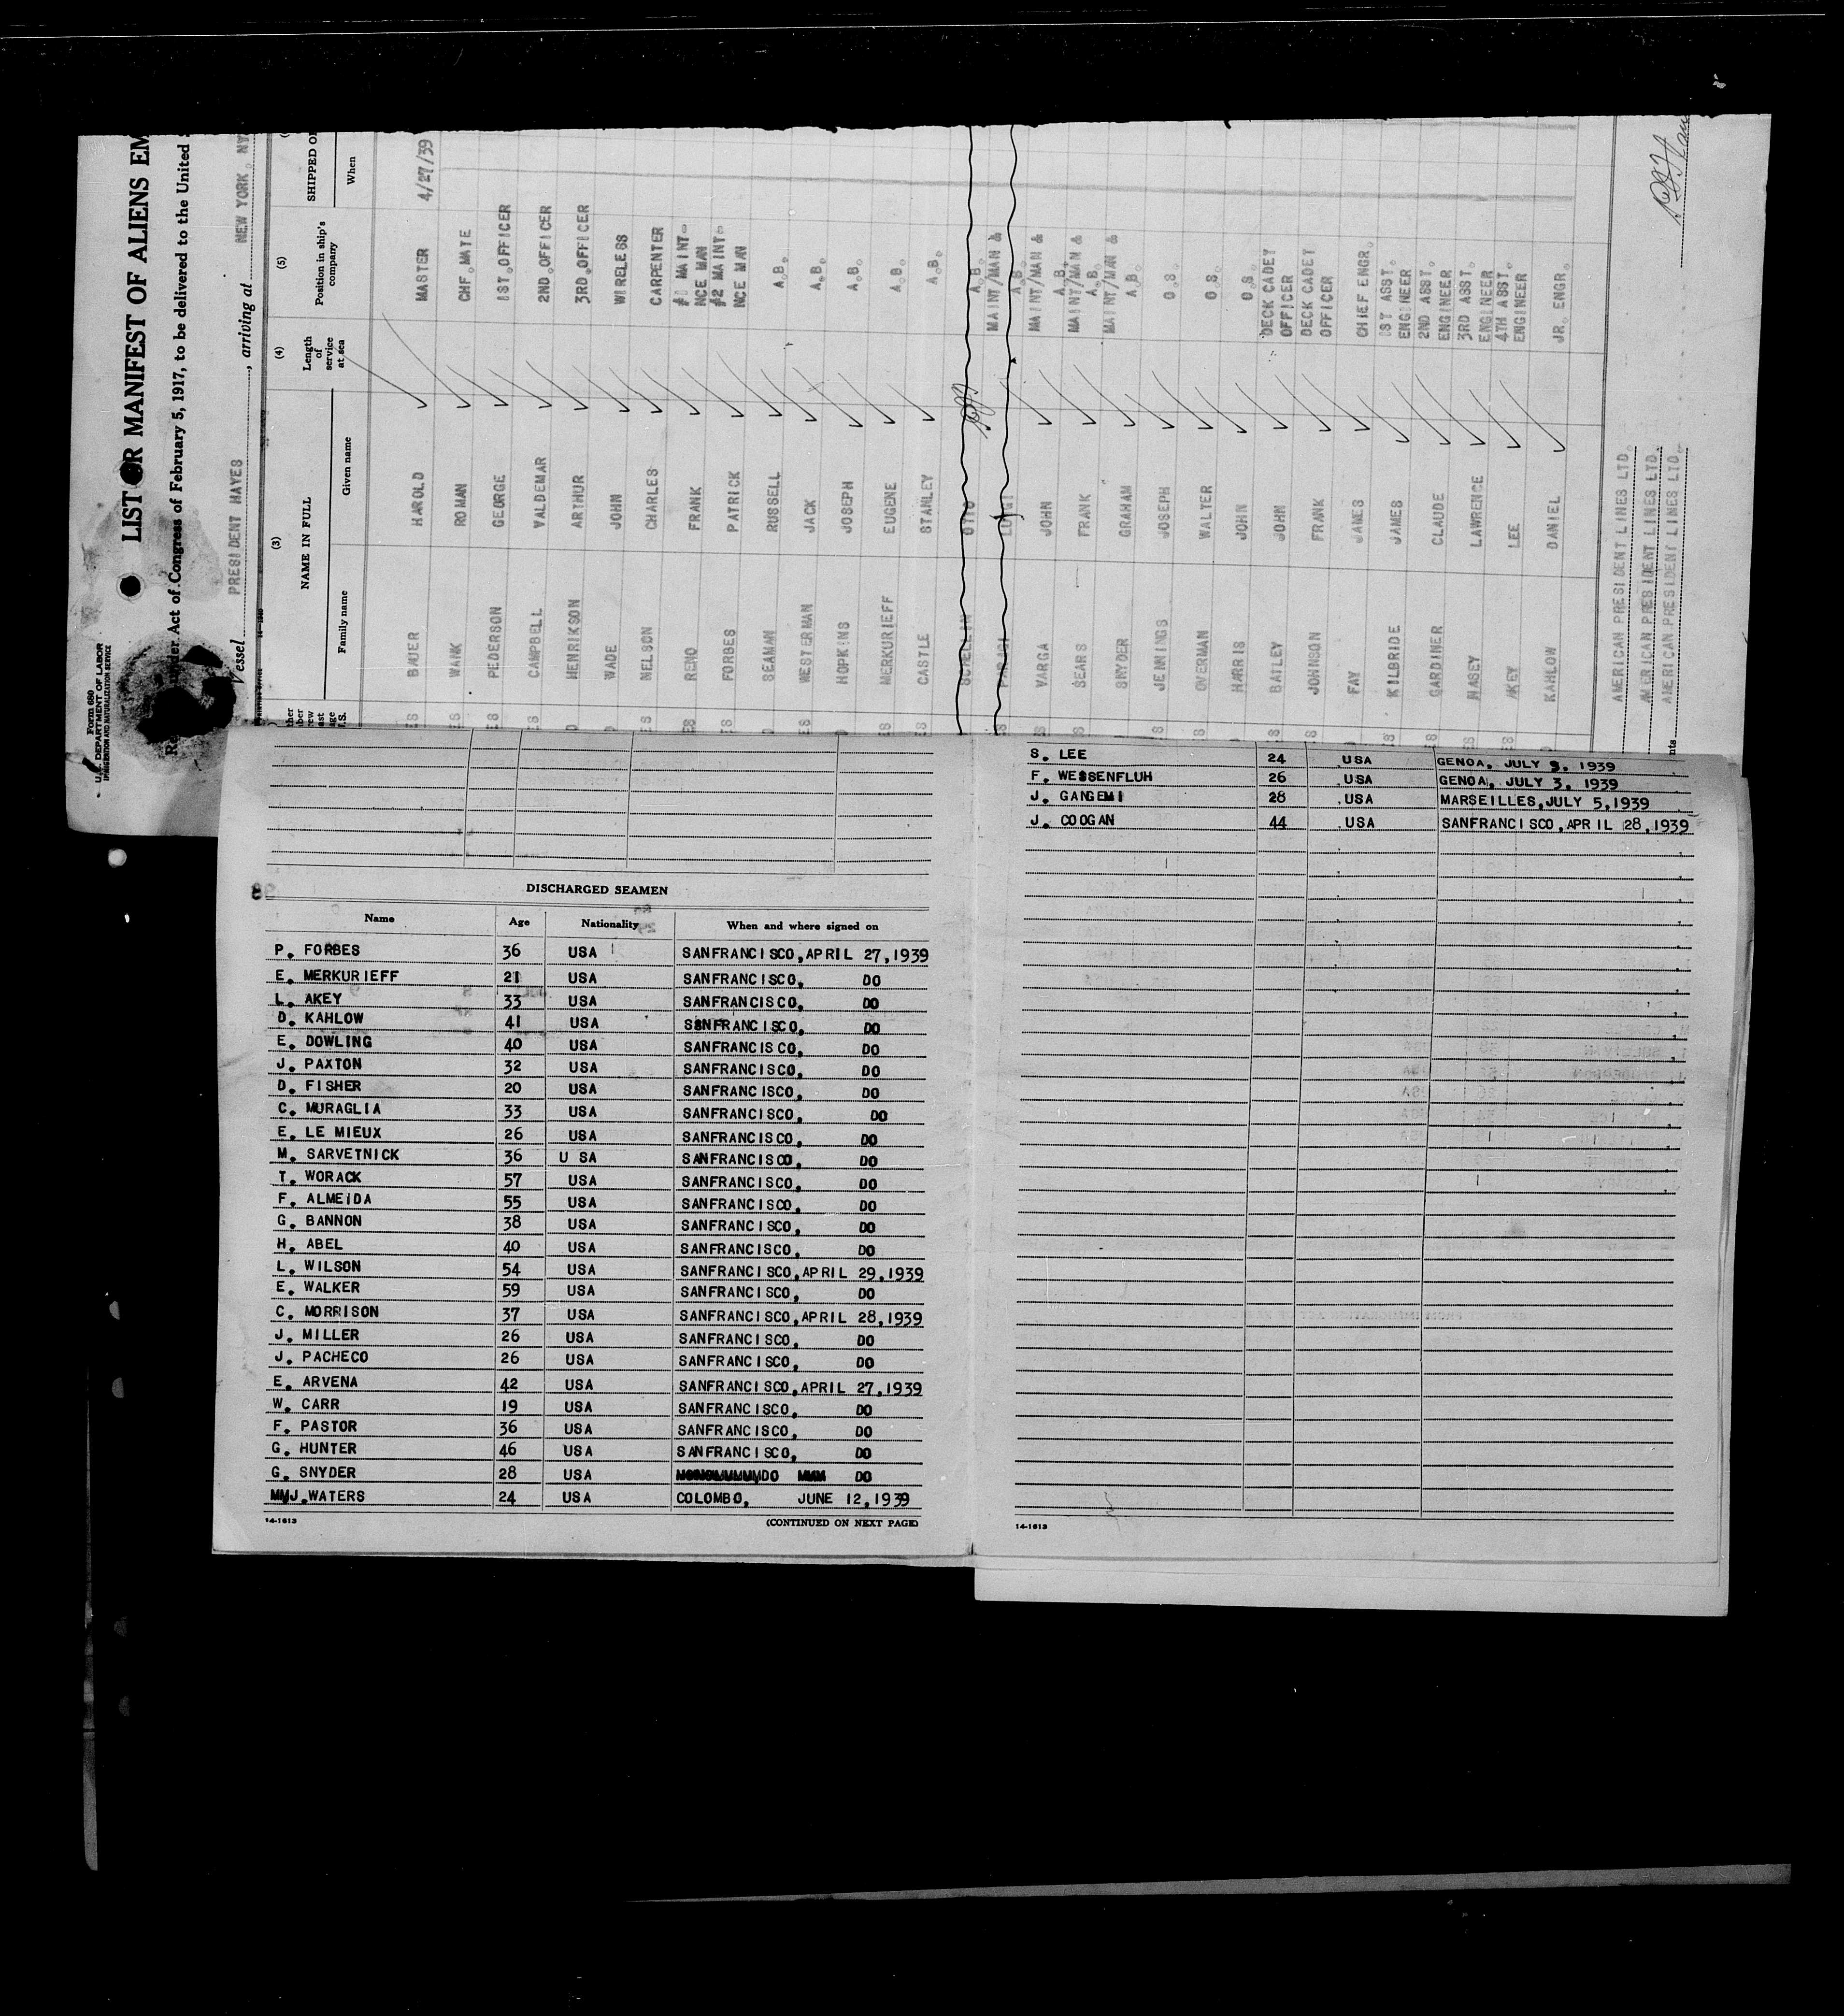 Form 680
U.S. DEPARTMENT OF LABOR
IMMIGRATION AND NATURALIZATION SERVICE
LIST OR MANIFEST OF ALIENS EM
Act of Congress of February 5, 1917, to be delivered to the United
Vessel PRESIDENT HAYES, arriving at NEW YORK, NY
(3) (4) (5)
NAME IN FULL Length of service at sea Position in ship's company SHIPPED OR
Family name Given name When
BAUER HAROLD MASTER 4/27/39
WANK ROMAN CHF.MATE
PEDERSON GEORGE 1ST.OFFICER
CAMPBELL VALDEMAR 2ND.OFFICER
HENRIKSON ARTHUR 3RD.OFFICER
WADE JOHN WIRELESS
NELSON CHARLES CARPENTER
RENO FRANK #1 MAINT-NCE MAN
FORBES PATRICK #2 MAINT-NCE MAN
SEAMAN RUSSELL A.B.
WESTERMAN JACK A.B.
HOPKINS JOSEPH A.B.
MERKURIEFF EUGENE A.B.
CASTLE STANLEY A.B.
OTTO A.B.
MAINT/MAN & A.B.
VARGA JOHN MAINT/MAN & A.B.
SEARS FRANK MAINT/MAN & A.B.
SNYDER GRAHAM MAINT/MAN & A.B.
JENNINGS JOSEPH O.S.
OVERMAN WALTER O.S.
HARRIS JOHN O.S.
BAILEY JOHN DECK CADET OFFICER
JOHNSON FRANK DECK CADET OFFICER
FAY JAMES CHIEF ENGR.
KILBRIDE JAMES 1ST ASST. ENGINEER
GARDINER CLAUDE 2ND ASST. ENGINEER
HASEY LAWRENCE 3RD ASST. ENGINEER
AKEY LEE 4TH ASST. ENGINEER
KAHLOW DANIEL JR. ENGR.
AMERICAN PRESIDENT LINES LTD.
AMERICAN PRESIDENT LINES LTD.
AMERICAN PRESIDENT LINES LTD.
DISCHARGED SEAMEN
Name Age Nationality When and where signed on
P. FORBES 36 USA SANFRANCISCO,APRIL 27,1939
E. MERKURIEFF 21 USA SANFRANCISCO, DO
L. AKEY 33 USA SANFRANCISCO, DO
D. KAHLOW 41 USA SANFRANCISCO, DO
E. DOWLING 40 USA SANFRANCISCO, DO
J. PAXTON 32 USA SANFRANCISCO, DO
D. FISHER 20 USA SANFRANCISCO, DO
C. MURAGLIA 33 USA SANFRANCISCO, DO
E. LE MIEUX 26 USA SANFRANCISCO, DO
M. SARVETNICK 36 U SA SANFRANCISCO, DO
T. WORACK 57 USA SANFRANCISCO, DO
F. ALMEIDA 55 USA SANFRANCISCO, DO
G. BANNON 38 USA SANFRANCISCO, DO
H. ABEL 40 USA SANFRANCISCO, DO
L. WILSON 54 USA SANFRANCISCO,APRIL 29,1939
E. WALKER 59 USA SANFRANCISCO, DO
C. MORRISON 37 USA SANFRANCISCO,APRIL 28,1939
J. MILLER 26 USA SANFRANCISCO, DO
J. PACHECO 26 USA SANFRANCISCO, DO
E. ARVENA 42 USA SANFRANCISCO,APRIL 27,1939
W. CARR 19 USA SANFRANCISCO, DO
F. PASTOR 36 USA SANFRANCISCO, DO
G. HUNTER 46 USA SANFRANCISCO, DO
G. SNYDER 28 USA DO DO
J.WATERS 24 USA COLOMBO, JUNE 12,1939
14-1613 (CONTINUED ON NEXT PAGE)
S. LEE 24 USA GENOA, JULY 3, 1939
F. WESSENFLUH 26 USA GENOA, JULY 3, 1939
J. GANGEMI 28 USA MARSEILLES,JULY 5,1939
J. COOGAN 44 USA SANFRANCISCO,APRIL 28,1939
14-1613